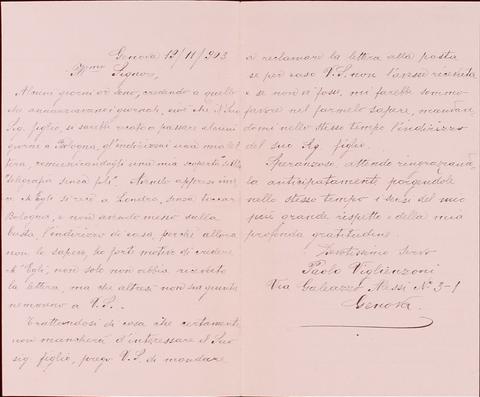 Genova 12/11/903
Ill.mo
Signore,
Alcuni giorni or sono, credendo a quello
che annunziavano i giornali, cioè che il Suo
Sig. figlio, si sarebbe recato a passare alcuni
giorni a Bologna, gl'indirizzai una mia let
tera, comunicandogli una mia scoperta sul
telegrafo senza fili. Avendo appreso in
ch'Egli si recò a Londra, senza toccar
Bologna, e non avendo messo sulla
busta, l'indirizzo di casa, perchè allora
non lo sapevo, ho forte motivo di credere
ch'Egli, non solo non abbia ricevuto
la lettera, ma che altresì non sia giunta
nemmeno a V.S..
Trattandosi di cosa che certamente
non mancherà d'interessare il Suo
sig. figlio, prego V.S. di mandare
a reclamare la lettera alla posta
se per caso V.S. non l'avesse ricevuta
e se non vi fosse, mi farebbe sommo
favore nel farmelo sapere, mandan
domi nello stesso tempo l'indirizzo
del suo Sig. figlio.
Speranzoso, attendo ringraziando
la anticipatamente, porgendole
nello stesso tempo i sensi del mio
più grande rispetto e della mia
profonda gratitudine.
Devotissimo Servo
Paolo Viglienzoni
Via Galeazzo Alessi N° 3-1
Genova